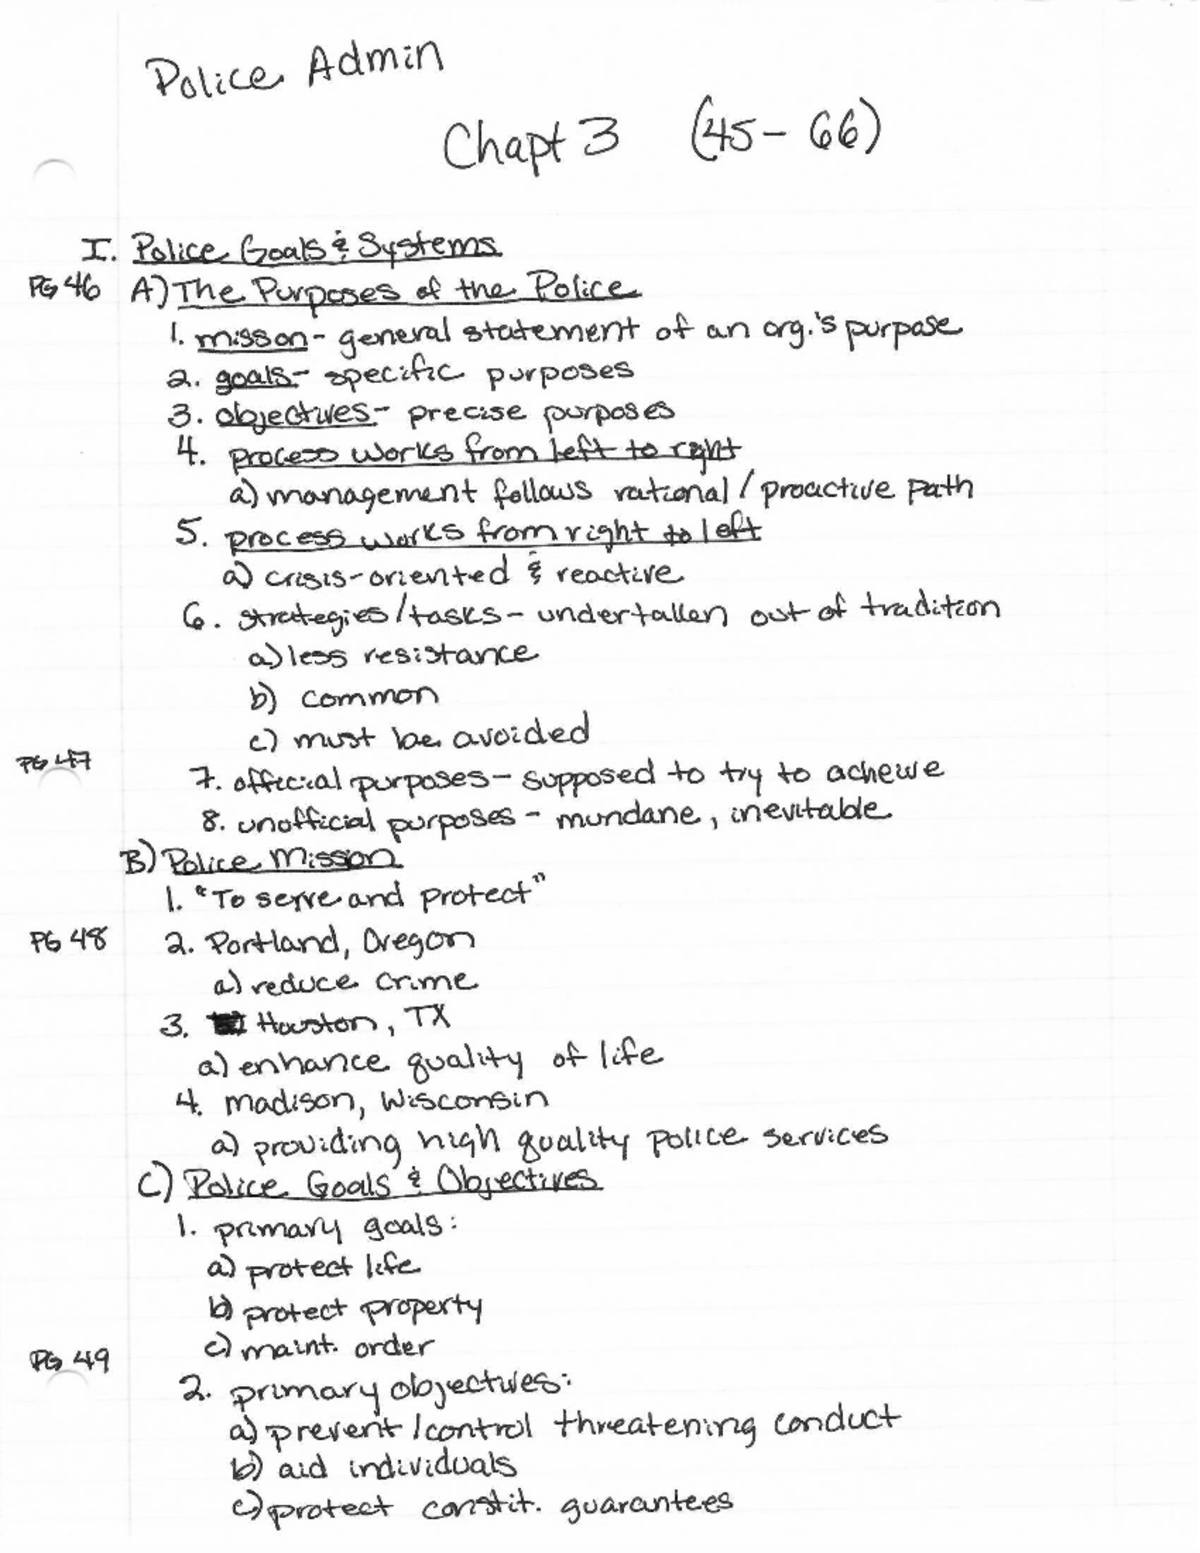 Police Admin
Chapt 3 (45-66)
I. Police Goals & Systems
PG 46 A) The Purposes of the Police
1. misson - general statement of an org.'s purpose
2. goals - specific purposes
3. objectives - precise purposes
4. process works from left to right
a) management follows rational / proactive path
5. process works from right to left
a) crisis-oriented & reactive
6. strategies/tasks - undertaken out of tradition
a) less resistance
b) common
c) must be avoided
PG 47
7. official purposes - supposed to try to acheive
8. unofficial purposes - mundane, inevitable
B) Police Misson
1. "To serve and protect"
PG 48 2. Portland, Oregon
a) reduce crime
3. Houston, TX
a) enhance quality of life
4. Madison, Wisconsin
a) providing high quality police services
C) Police Goals & Objectives
1. primary goals:
a) protect life
b) protect property
c) maint. order
PG 49
2. primary objectives:
a) prevent / control threatening conduct
b) aid individuals
c) protect constit. guarantees